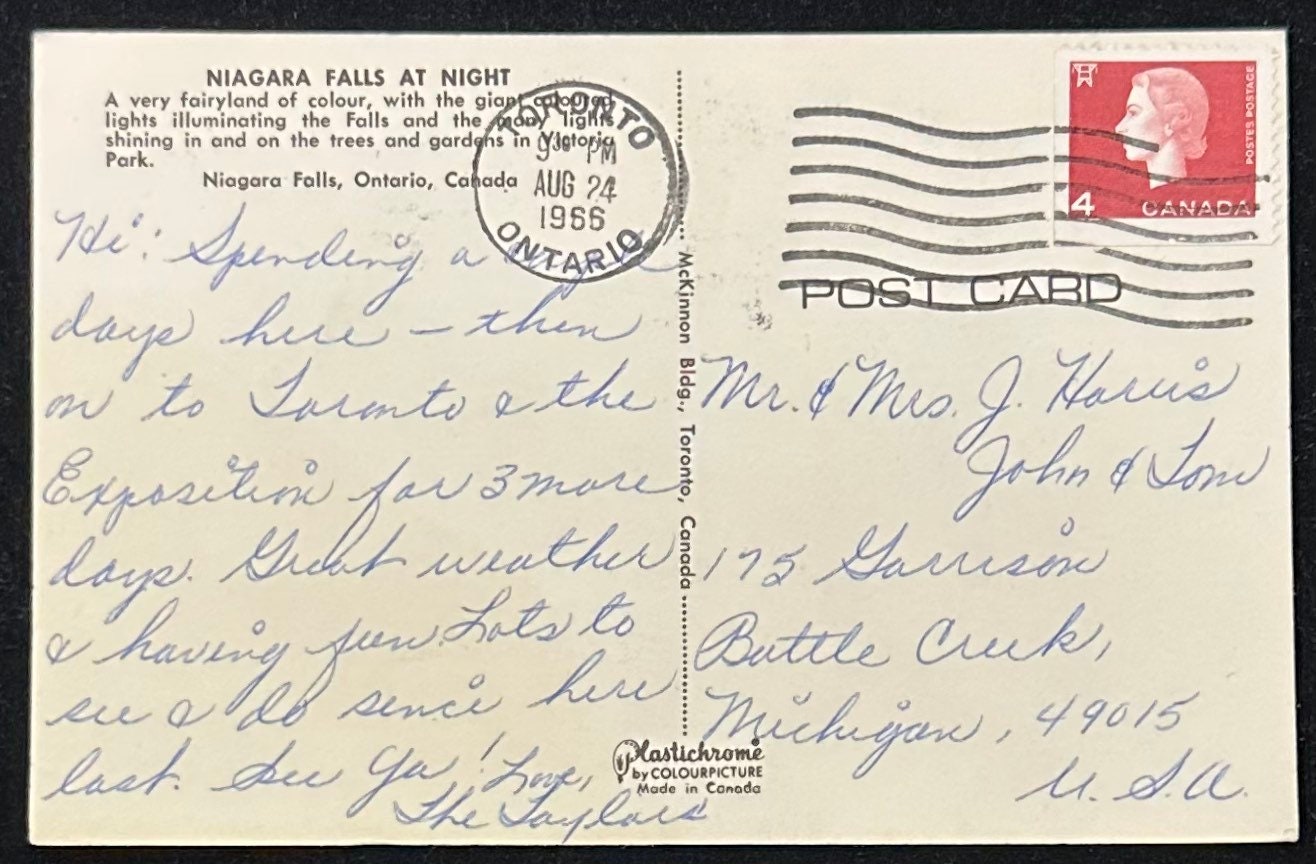 NIAGARA FALLS AT NIGHT
A very fairyland of colour, with the giant coloured
lights illuminating the Falls and the many lights
shining in and on the trees and gardens in Victoria
Park.
Niagara Falls, Ontario, Canada
TORONTO
9 PM
AUG 24
1966
ONTARIO
POSTES POSTAGE
4 CANADA
POST CARD
Hi: Spending a
days here – then
on to Toronto & the
Exposition for 3 more
days. Great weather
& having fun. Lots to
see & do since here
last. See Ya! Love,
The Taylors
McKinnon Bldg., Toronto, Canada
Mr. & Mrs. J. Harris
John & Tom
175 Garrison
Battle Creek,
Michigan, 49015
U.S.A.
Plastichrome
by COLOURPICTURE
Made in Canada